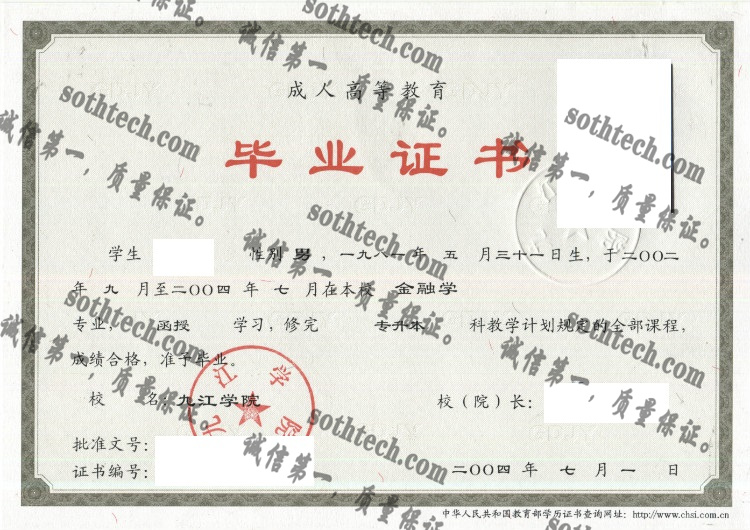 成人高等教育
毕业证书
学生 性别 男 ，一九八一年 五 月三十一日生，于二〇〇二
年 九 月至二〇〇四年 七 月在本校 金融学
专业， 函授 学习，修完 专升本 科教学计划规定的全部课程，
成绩合格，准予毕业。
校 名：九江学院 校（院）长：
批准文号：
证书编号： 二〇〇四年 七 月 一 日
中华人民共和国教育部学历证书查询网址：http://www.chsi.com.cn
九江学院
sothtech.com
诚信第一，质量保证。
sothtech.com
诚信第一，质量保证。
sothtech.com
诚信第一，质量保证。
sothtech.com
诚信第一，质量保证。
sothtech.com
诚信第一，质量保证。
sothtech.com
诚信第一，质量保证。
sothtech.com
诚信第一，质量保证。